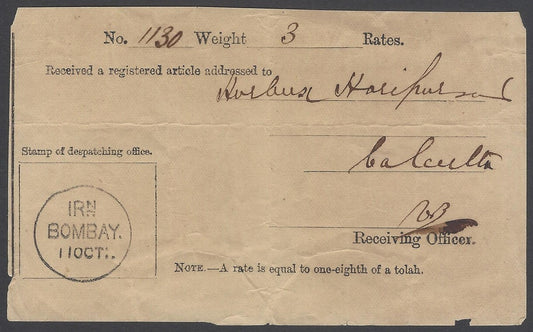 No. 1130 Weight 3 Rates.
Received a registered article addressed to
Hurbux Horipursad
Stamp of despatching office.
Calcutta
IRN
BOMBAY.
11OCT.
Receiving Officer.
NOTE.—A rate is equal to one-eighth of a tolah.